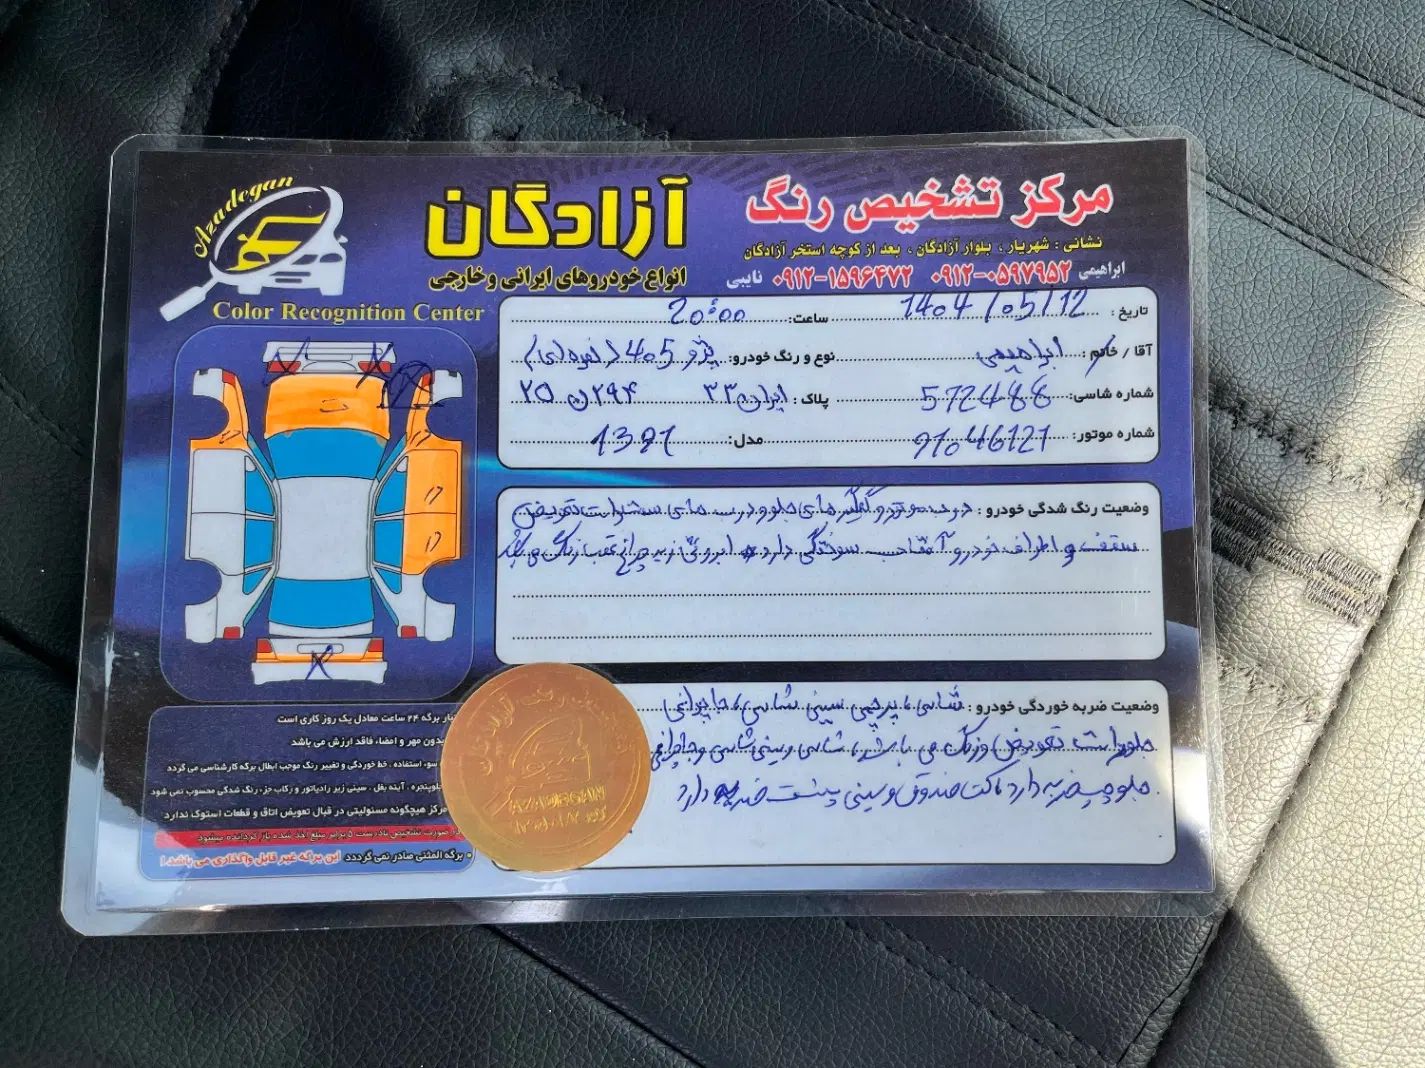 Azadegan
Color Recognition Center
آزادگان
انواع خودروهای ایرانی و خارجی
مرکز تشخیص رنگ
نشانی : شهریار ، بلوار آزادگان ، بعد از کوچه استخر آزادگان
ابراهیمی ۰۹۱۲-۰۵۹۷۹۵۲ ۰۹۱۲-۱۵۹۶۴۷۲ نایبی
تاریخ : 1404/05/12 ساعت: 20:00
آقا / خانم : ابراهیمی نوع و رنگ خودرو: پژو 405 (نقره ای)
شماره شاسی: 572488 پلاک : ایران ۳۳ ۲۹۴ ن ۲۵
شماره موتور: 91046121 مدل: 1391
وضعیت رنگ شدگی خودرو : درب موتور و گلگیر های جلو و درب های سمت راست تعویض
سقف و اطراف خودرو آفتاب سوختگی دارد ابروئی زیر چراغ عقب رنگ می باشد
وضعیت ضربه خوردگی خودرو : شاسی، پرچمی سینی شاسی، جا چراغی
جلو راست تعویض و رنگ می باشد، شاسی و سینی شاسی و جا چراغی
جلو چپ ضربه دارد کف صندوق و سینی پشت ضربه دارد
اعتبار برگه ۲۴ ساعت معادل یک روز کاری است
بدون مهر و امضاء، فاقد ارزش می باشد
سوء استفاده . خط خوردگی و تغییر رنگ موجب ابطال برگه کارشناسی می گردد
جلوپنجره . آینه بغل . سینی زیر رادیاتور و رکاب جزء رنگ شدگی محسوب نمی شود
مرکز هیچگونه مسئولیتی در قبال تعویض اتاق و قطعات استوک ندارد
در صورت تشخیص نادرست ۵ برابر مبلغ اخذ شده باز گردانده میشود
• برگه المثنی صادر نمی گردد این برگه غیر قابل واگذاری می باشد !
AZADEGAN